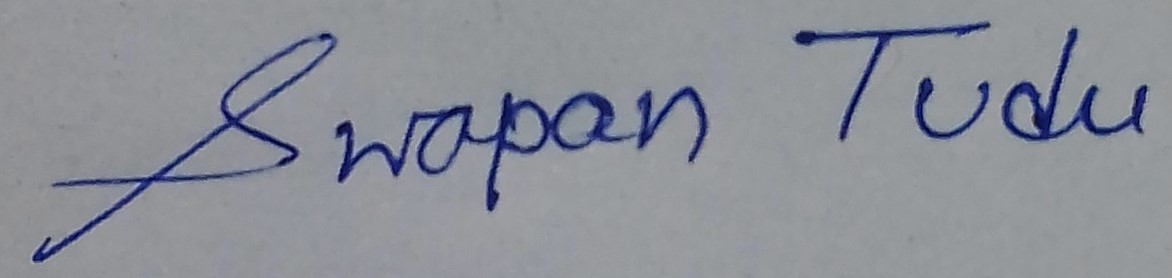 Swapan Tudu